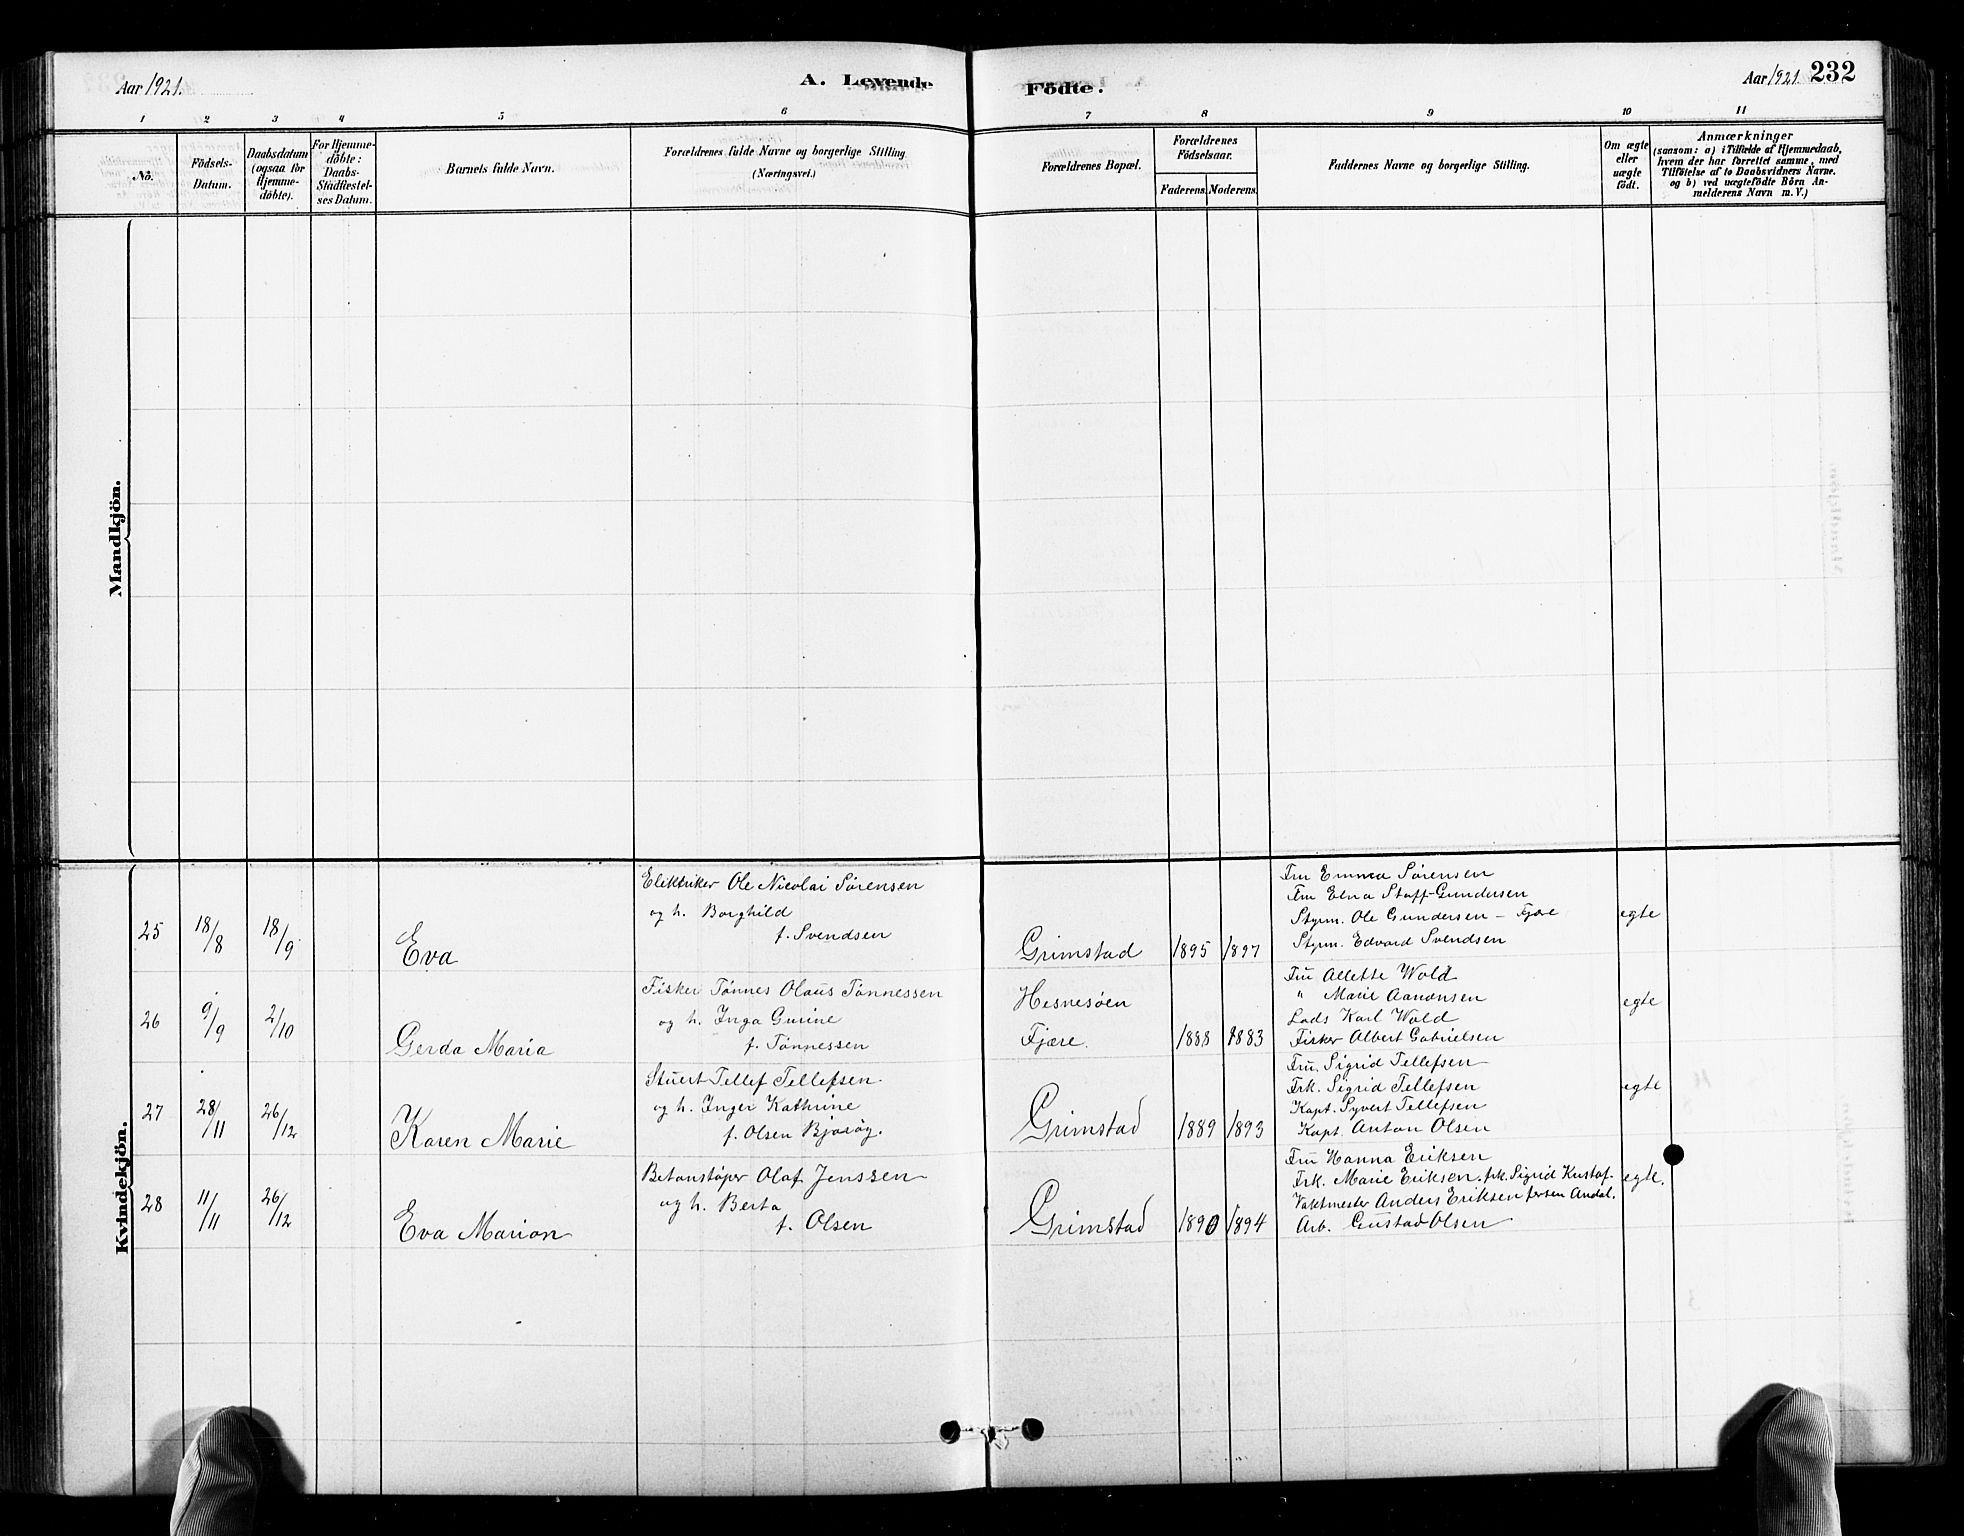 Aar 1921.
A. Levende
Födte.
Aar 1921
232
1 2 3 4 5 6 7 8 9 10 11
No.
Födsels-
Datum.
Daabsdatum
(ogsaa for
Hjemme-
döbte).
For Hjemme-
döbte:
Daabs-
Stadfæstel-
ses Datum.
Barnets fulde Navn.
Forældrenes fulde Navne og borgerlige Stilling
(Næringsvei.)
Forældrenes Bopæl.
Forældrenes
Födselsaar.
Faderens. Moderens.
Faddernes Navne og borgerlige Stilling.
Om ægte
eller
uægte
födt.
Anmærkninger
(saasom: a) i Tilfælde af Hjemmedaab,
hvem der har forrettet samme, med
Tilföielse af to Daabsvidners Navne.
og b) ved uægtefödte Börn An-
melderens Navn m. V.)
Mandkjön.
Kvindekjön.
25
18/8
18/9
Eva
Elektriker Ole Nicolai Sørensen
og h. Borghild
f. Svendsen
Grimstad
1895
1897
Fru Emma Sørensen
Fru Elna Staff-Gundersen
Styrm. Ole Gundersen - Fjære
Styrm. Edvard Svendsen
egte
26
9/9
2/10
Gerda Maria
Fisker Tønnes Olaus Tønnessen
og h. Inga Gurine
f. Tønnessen
Hesnesøen
Fjære.
1888
1883
Fru Allette Wold
" Marie Aanonsen
Lods Karl Wold
Fisker Albert Gabrielsen
egte
27
28/11
26/12
Karen Marie
Stuert Tellef Tellefsen.
og h. Inger Kathrine
f. Olsen Bjorøy.
Grimstad
1889
1893
Fru. Sigrid Tellefsen
Frk. Sigrid Tellefsen
Kapt. Syvert Tellefsen
Kapt. Anton Olsen
egte
28
11/11
26/12
Eva Marion
Betonstøper Olaf Jenssen
og h. Berta
f. Olsen
Grimstad
1890
1894
Fru Hanna Eriksen
Frk. Marie Eriksen. frk. Sigrid Kristof-
Vaktmester Anders Eriksen fersen Andal.
Arb. Gustav Olsen
egte.